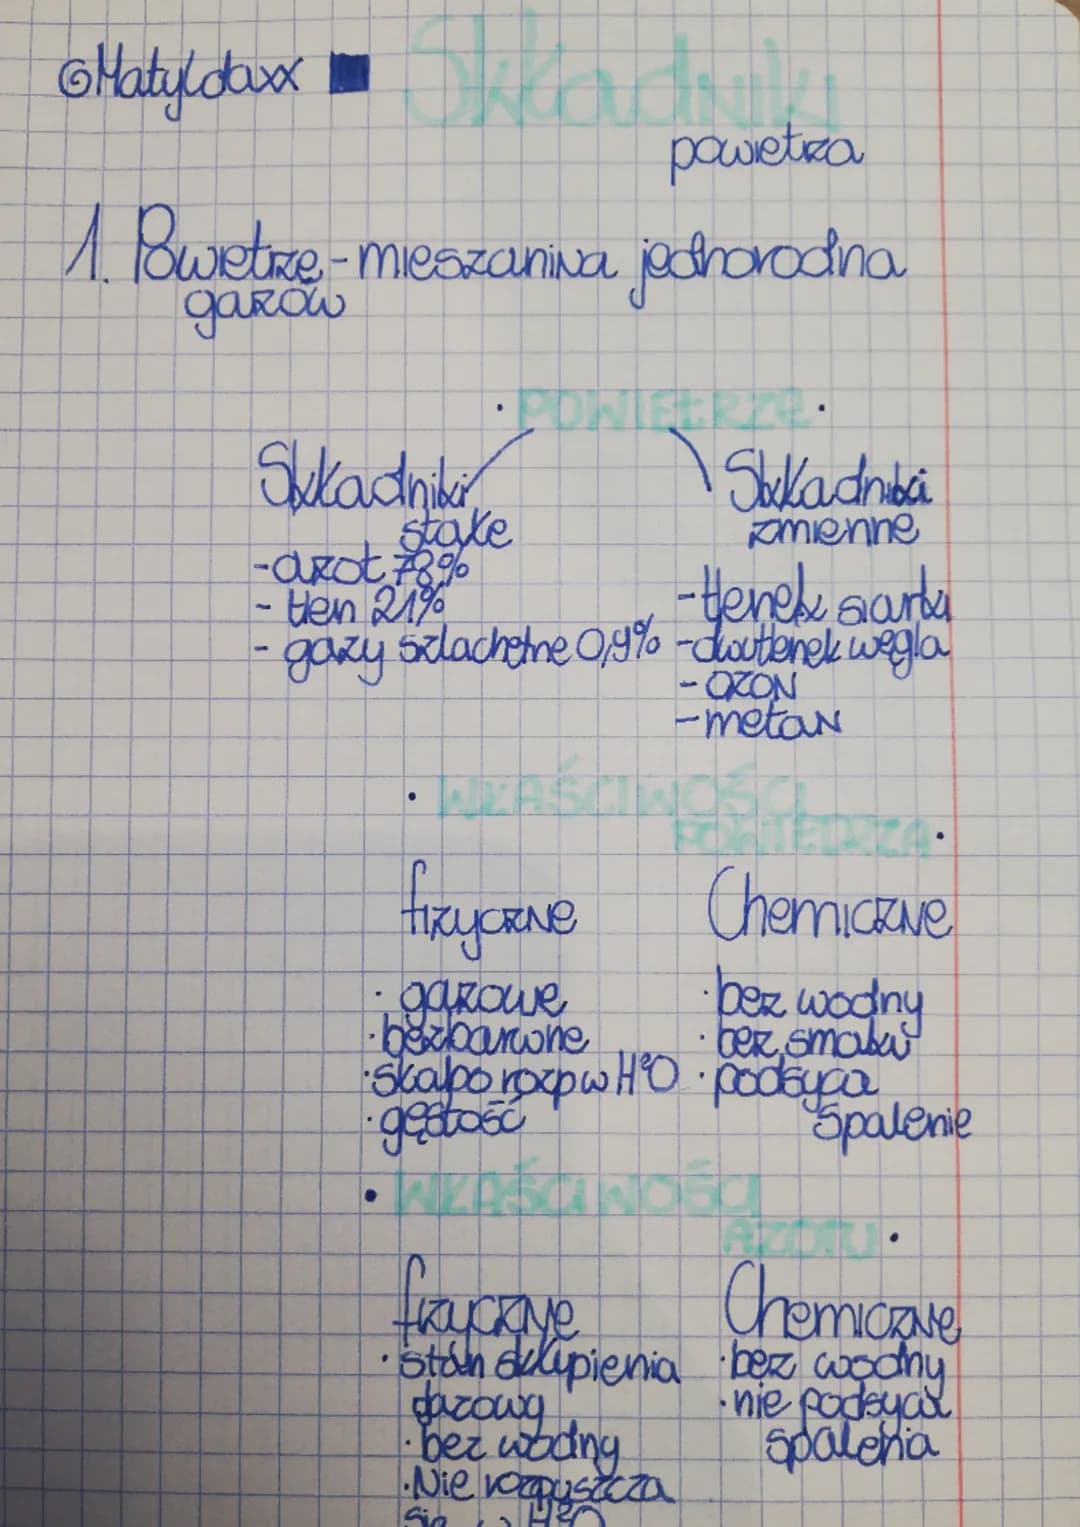 @Matyldaxx
Składniki
powietrza
1. Powietrze - mieszanina jednorodna
gazów
• POWIETRZE •
Składniki
stałe
- azot 78%
- tlen 21%
- gazy szlachetne 0,9%
Składniki
zmienne
- tlenek siarki
- dwutlenek węgla
- ozon
- metan
• WŁAŚCIWOŚCI
POWIETRZA •
fizyczne
• gazowe
• bezbarwne
• słabo rozp w H²O
• gęstość
Chemiczne
• bez wodny
• bez smaku
• podsyca
spalenie
• WŁAŚCIWOŚCI
AZOTU •
fizyczne
• stan skupienia
gazowy
• bez wodny
• Nie rozpuszcza
się w H²O
Chemiczne
• bez wodny
• nie podsyca
spalenia